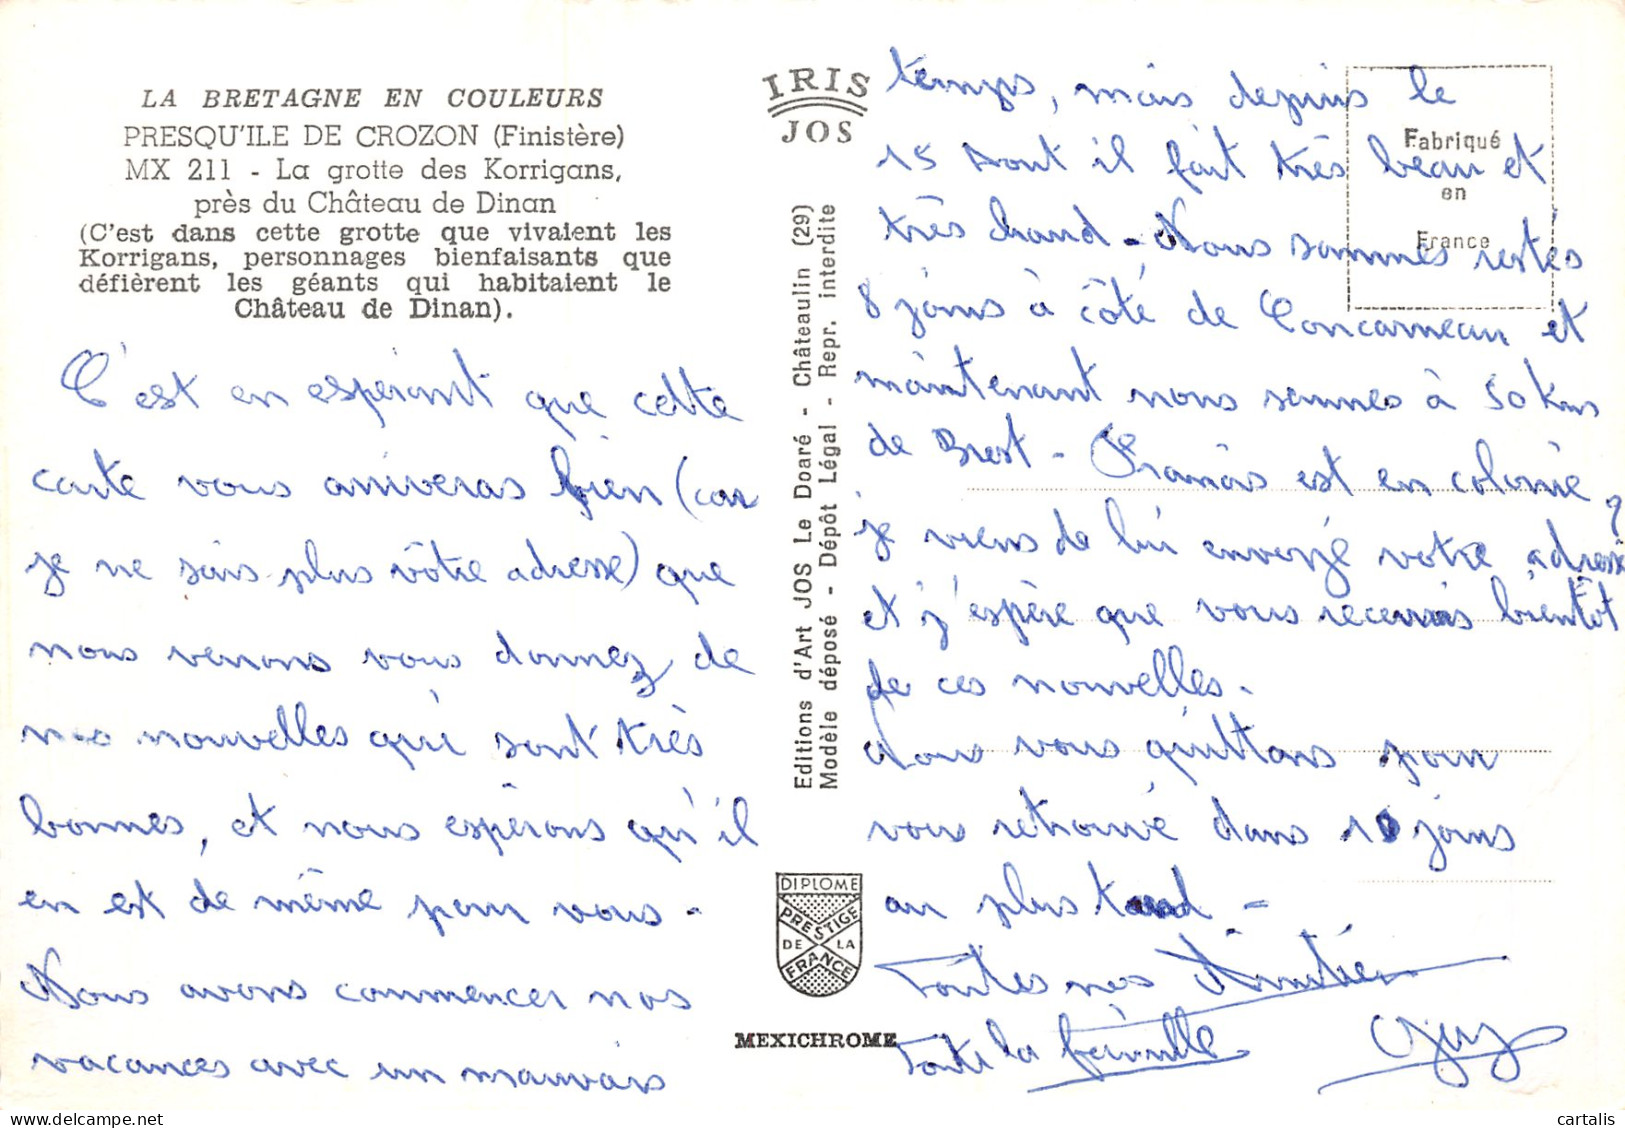 LA BRETAGNE EN COULEURS
PRESQU'ILE DE CROZON (Finistère)
MX 211 - La grotte des Korrigans,
près du Château de Dinan
(C'est dans cette grotte que vivaient les
Korrigans, personnages bienfaisants que
défièrent les géants qui habitaient le
Château de Dinan).
C'est en esperant que cette
carte vous arriveras bien (car
je ne sais plus vôtre adresse) que
nous venons vous donnez de
nos nouvelles qui sont très
bonnes, et nous espérons qu'il
en est de même pour vous -
Nous avons commencer nos
vacances avec un mauvais
IRIS
JOS
Editions d'Art JOS Le Doaré - Châteaulin (29)
Modèle déposé - Dépôt Légal - Repr. interdite
DIPLOME
PRESTIGE
DE LA
FRANCE
MEXICHROME
Fabriqué
en
France
temps, mais depuis le
15 Aout il fait très beau et
très chaud - Nous sommes restés
8 jours à côté de Concarneau et
maintenant nous sommes à 50 kms
de Brest - Francis est en colonie,
je viens de lui envoyé votre adresse
et j'espère que vous recevrais bientôt
de ces nouvelles -
Nous vous quittons pour
vous retrouvé dans 10 jours
au plus tard -
Toutes nos Amitiés
Toute la famille Guy
cartalis